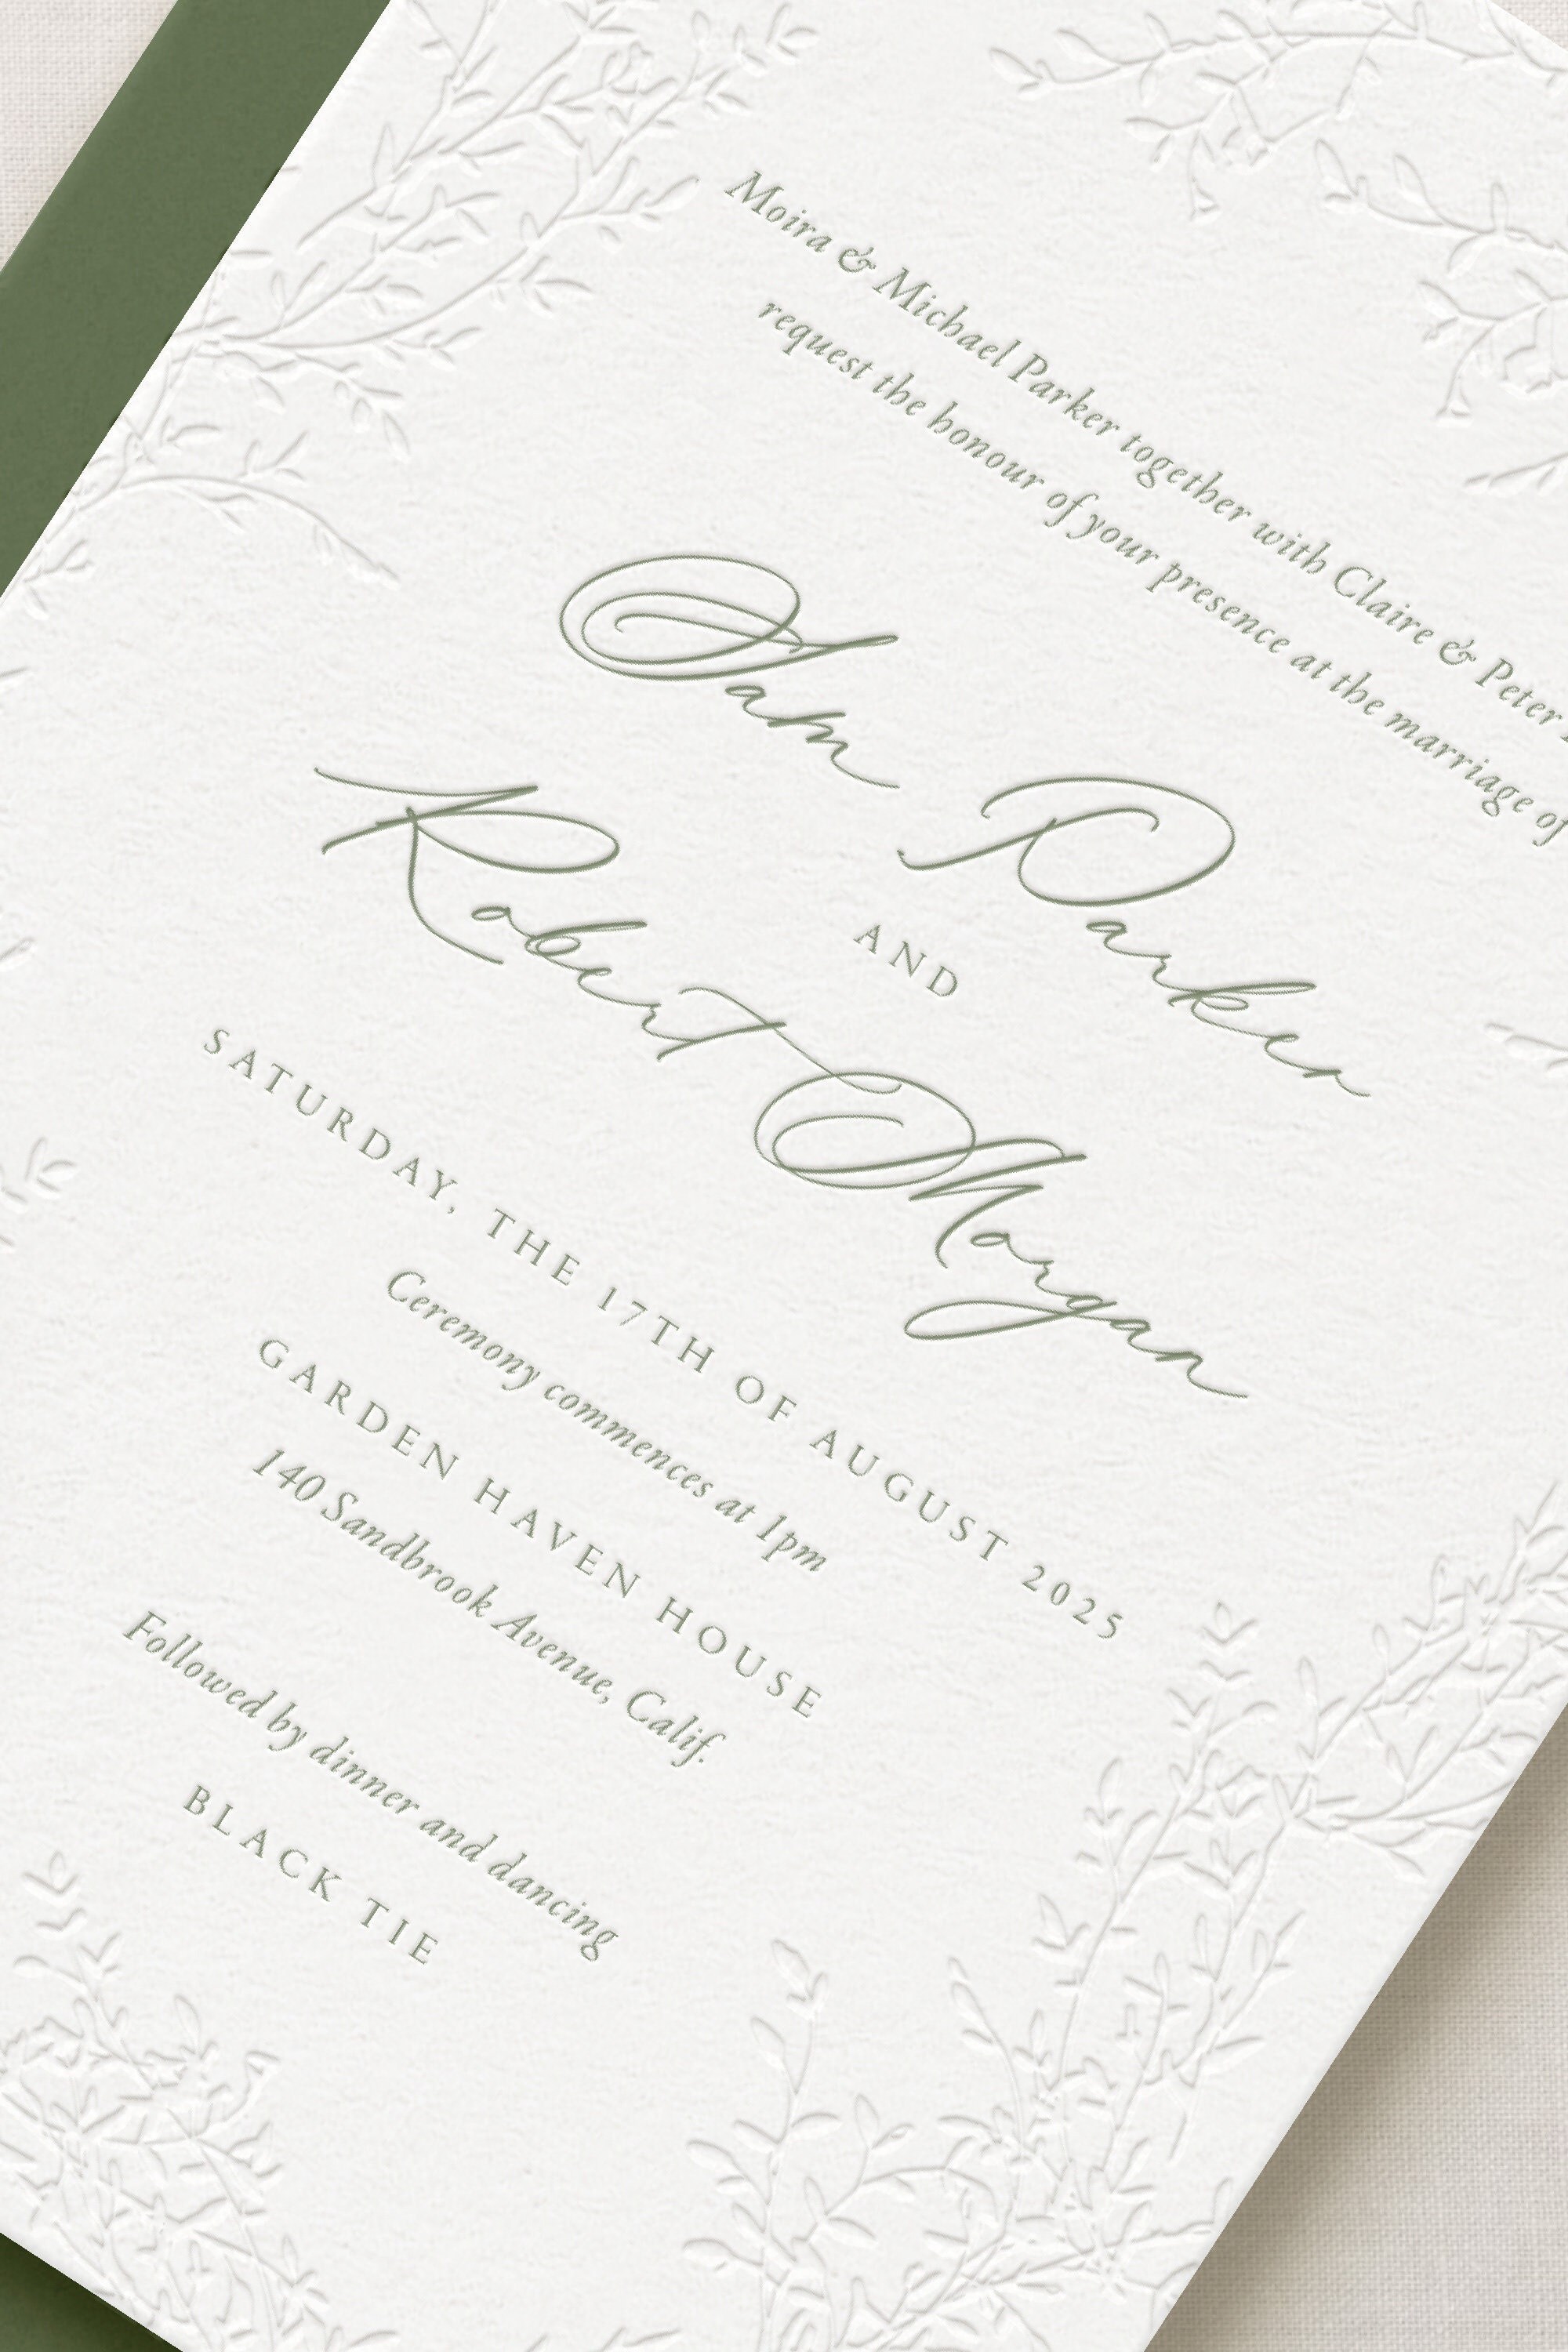 Moira & Michael Parker together with Claire & Peter
request the honour of your presence at the marriage of
Sam Parker
AND
Robert Morgan
SATURDAY, THE 17TH OF AUGUST 2025
Ceremony commences at 1pm
GARDEN HAVEN HOUSE
140 Sandbrook Avenue, Calif.
Followed by dinner and dancing
BLACK TIE